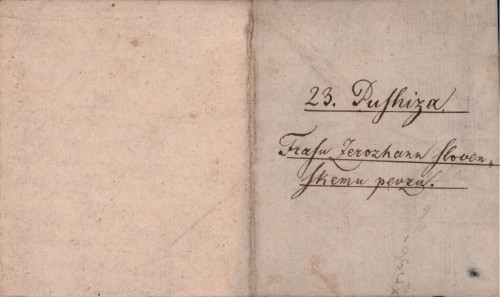 23. Pushiza.
Frasu Zerozhann sloven„
skemu pevzu.